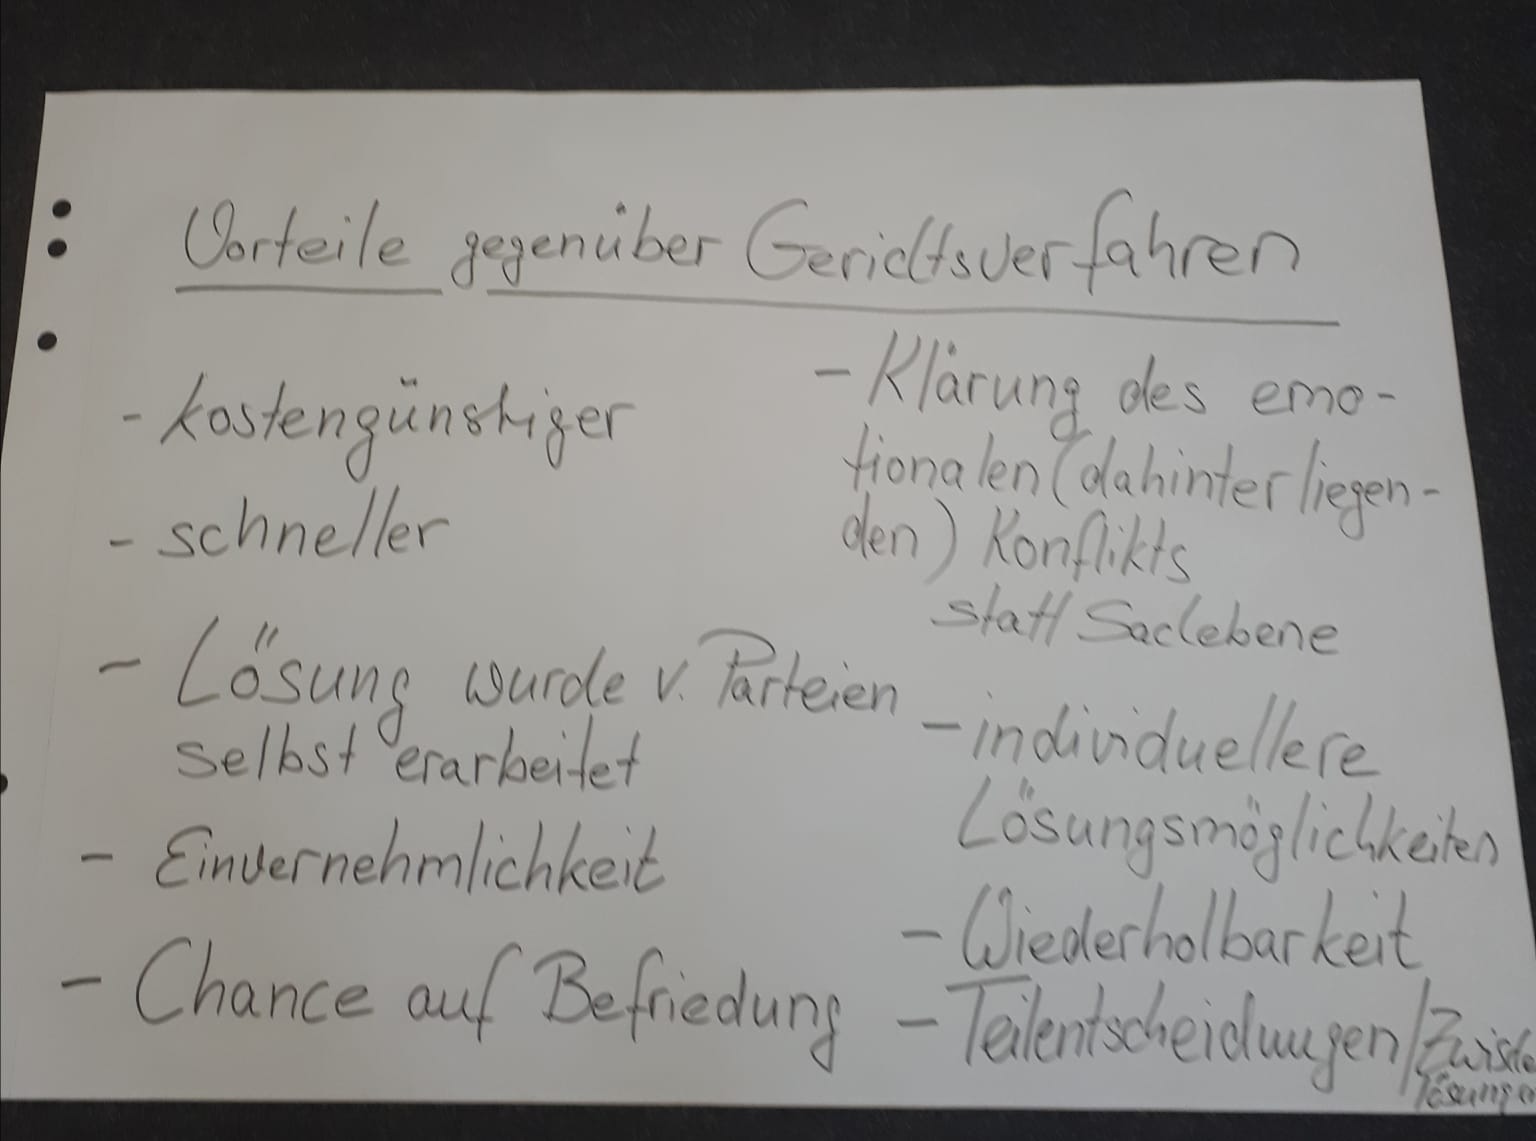 Vorteile gegenüber Gerichtsverfahren
- kostengünstiger
- schneller
- Lösung wurde v. Parteien
selbst erarbeitet
- Einvernehmlichkeit
- Chance auf Befriedung
- Klärung des emo-
tionalen (dahinterliegen-
den) Konflikts
statt Sachebene
- individuellere
Lösungsmöglichkeiten
- Wiederholbarkeit
- Teilentscheidungen/Zwische
lösungen